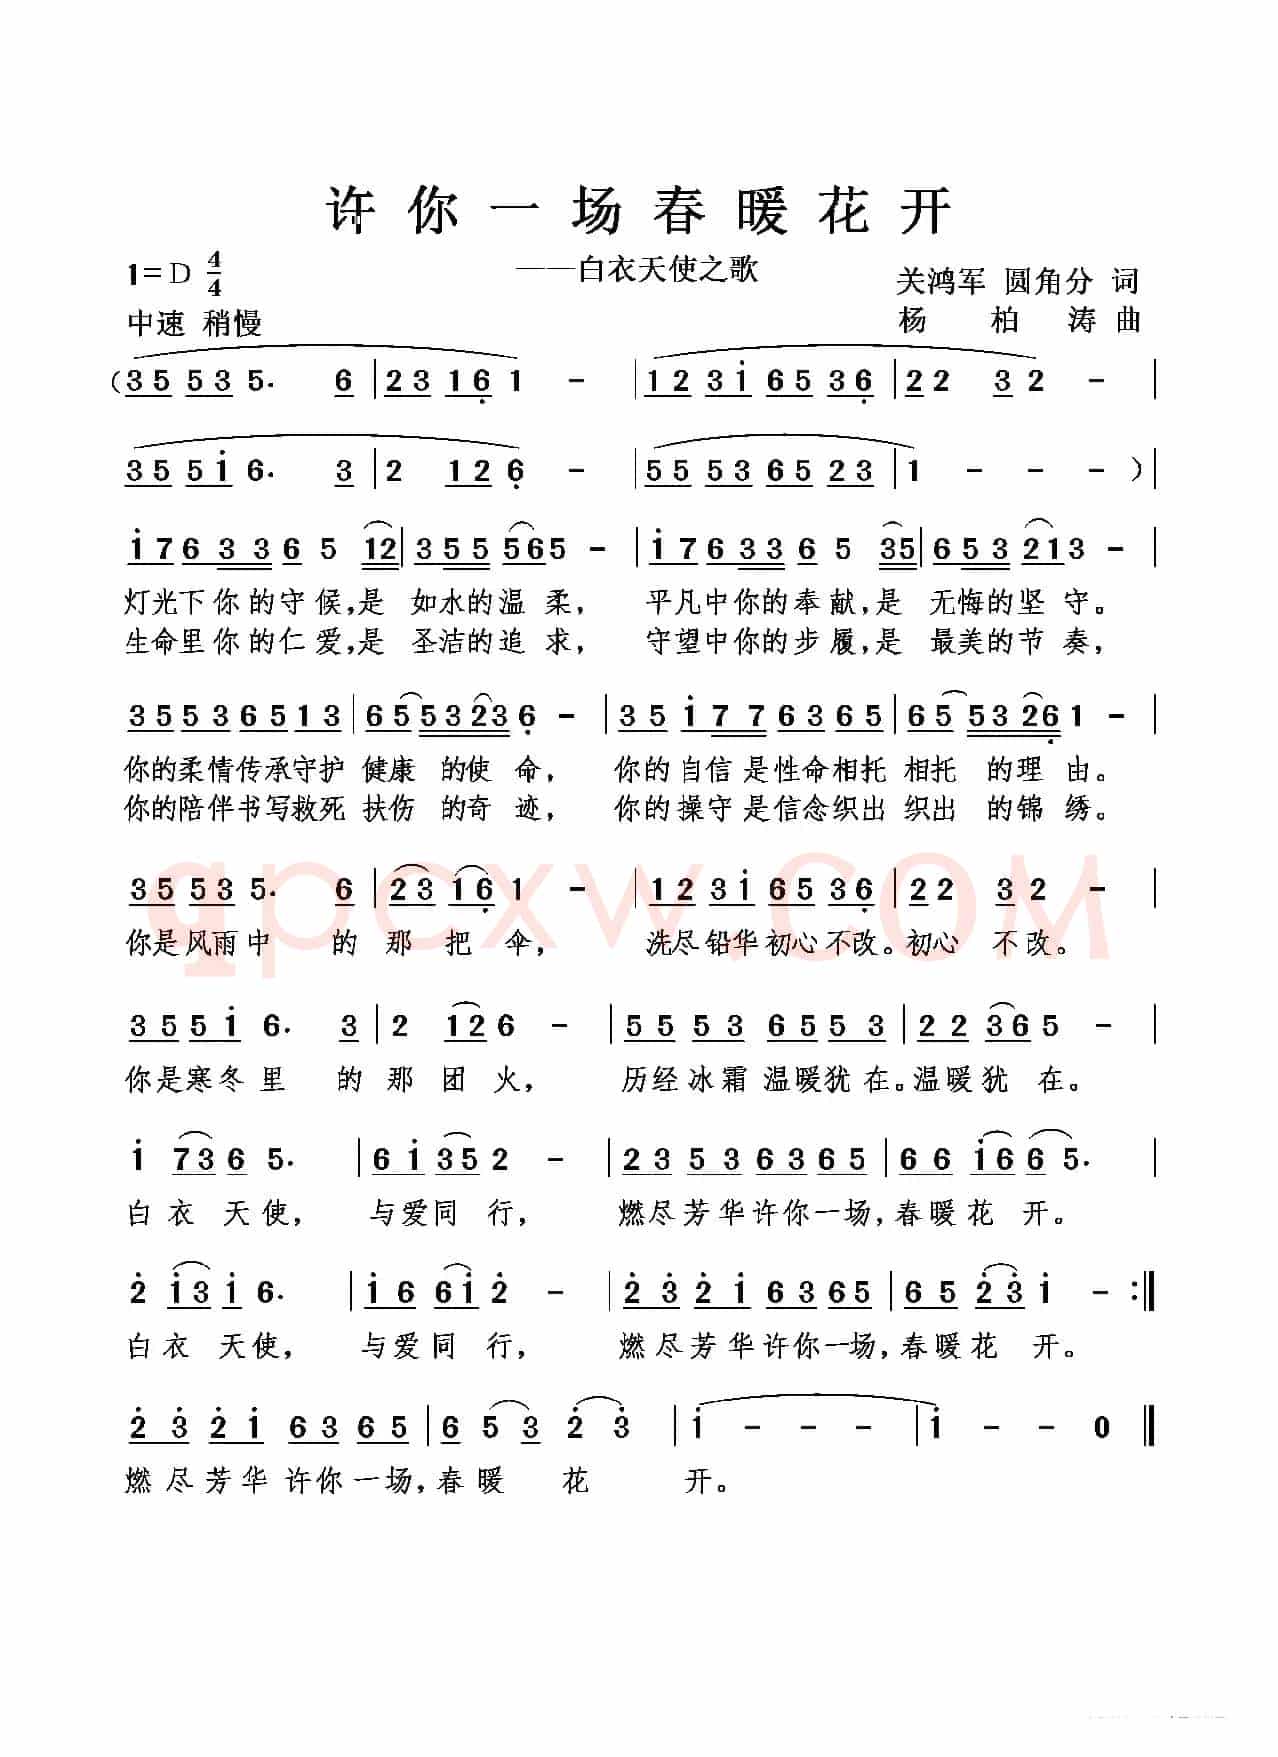 许你一场春暖花开
——白衣天使之歌
1=D 4/4
中速 稍慢
关鸿军 圆角分 词
杨柏涛 曲
(3 5 5 3 5. 6 | 2 3 1 6 1 - | 1 2 3 1 6 5 3 6 | 2 2 3 2 - |
3 5 5 1 6. 3 | 2 1 2 6 - | 5 5 5 3 6 5 2 3 | 1 - - - ) |
1 7 6 3 3 6 5 1 2 | 3 5 5 5 6 5 - | 1 7 6 3 3 6 5 3 5 | 6 5 3 2 1 3 - |
灯光下你的守候,是 如水的温柔, 平凡中你的奉献,是 无悔的坚守。
生命里你的仁爱,是 圣洁的追求, 守望中你的步履,是 最美的节奏,
3 5 5 3 6 5 1 3 | 6 5 5 3 2 3 6 - | 3 5 1 7 7 6 3 6 5 | 6 5 5 3 2 6 1 - |
你的柔情传承守护 健康 的使命, 你的自信是性命相托 相托 的理由。
你的陪伴书写救死 扶伤 的奇迹, 你的操守是信念织出 织出 的锦绣。
3 5 5 3 5. 6 | 2 3 1 6 1 - | 1 2 3 1 6 5 3 6 | 2 2 3 2 - |
你是风雨中 的那把伞, 洗尽铅华初心不改。初心 不改。
3 5 5 1 6. 3 | 2 1 2 6 - | 5 5 5 3 6 5 5 3 | 2 2 3 6 5 - |
你是寒冬里 的那团火, 历经冰霜温暖犹在。温暖犹 在。
1 7 3 6 5. | 6 1 3 5 2 - | 2 3 5 3 6 3 6 5 | 6 6 1 6 6 5. |
白衣天使, 与爱同行, 燃尽芳华许你一场,春暖花 开。
2 1 3 1 6. | 1 6 6 1 2 - | 2 3 2 1 6 3 6 5 | 6 5 2 3 1 - :|
白衣天使, 与爱同行, 燃尽芳华许你一场,春暖花 开。
2 3 2 1 6 3 6 5 | 6 5 3 2 3 | 1 - - - | 1 - - 0 |
燃尽芳华许你一场,春暖 花 开。
qpcxw.COM